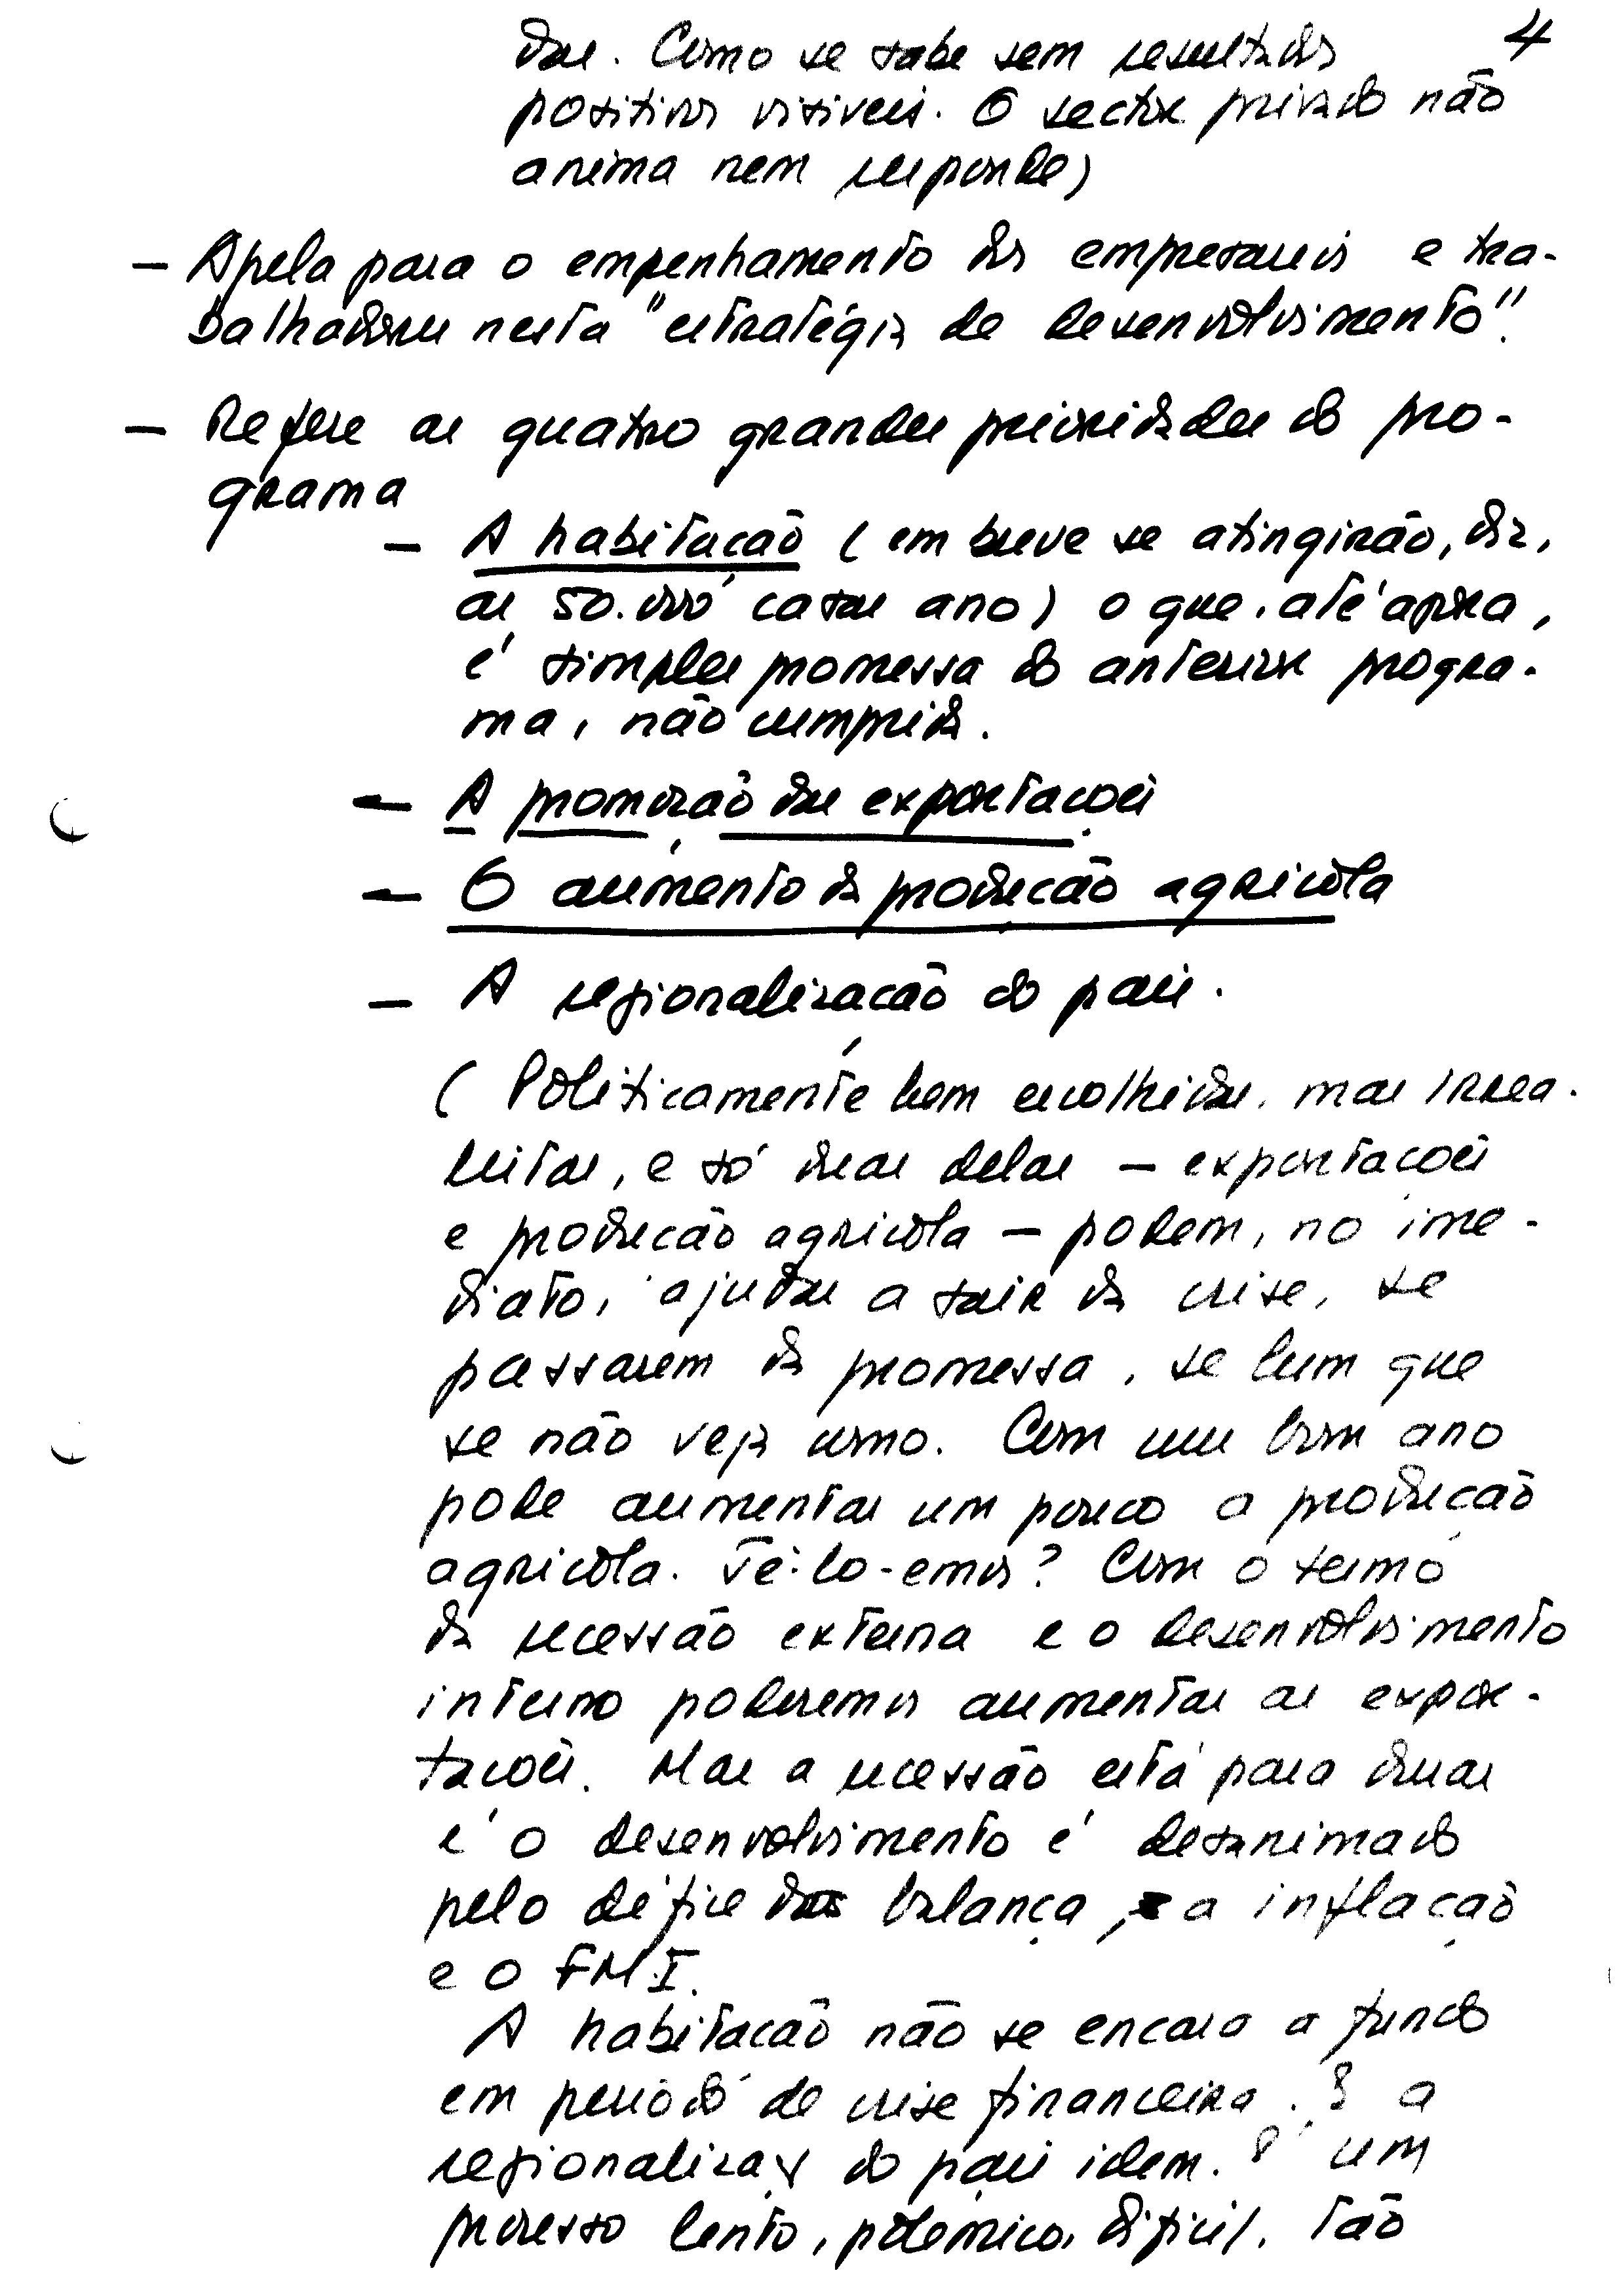 4
das. Como se sabe sem resultados
positivos visíveis. O sector privado não
anima nem responde)
- Apela para o empenhamento dos empresários e tra-
balhadores nesta "estratégia de desenvolvimento".
- Refere as quatro grandes prioridades do pro-
grama
- A habitação (em breve se atingirão, diz,
as 50.000 casas ano) o que, até agora,
é simples promessa do anterior progra-
ma, não cumprida.
- A promoção das exportações
- O aumento da produção agrícola
- A regionalização do país.
(Politicamente bem escolhidas, mas irrea-
listas, e só duas delas - exportações
e produção agrícola - podem, no ime-
diato, ajudar a sair da crise, se
passarem da promessa, se bem que
se não veja como. Com um bom ano
pode aumentar um pouco a produção
agrícola. Tê-lo-emos? Com o termo
da recessão externa e o desenvolvimento
interno poderemos aumentar as expor-
tações. Mas a recessão está para durar
e o desenvolvimento é desanimado
pelo défice da balança, a inflação
e o FMI.
A habitação não se encara a fundo
em período de crise financeira. E a
regionalização do país idem. É um
processo lento, polémico, difícil. Tão